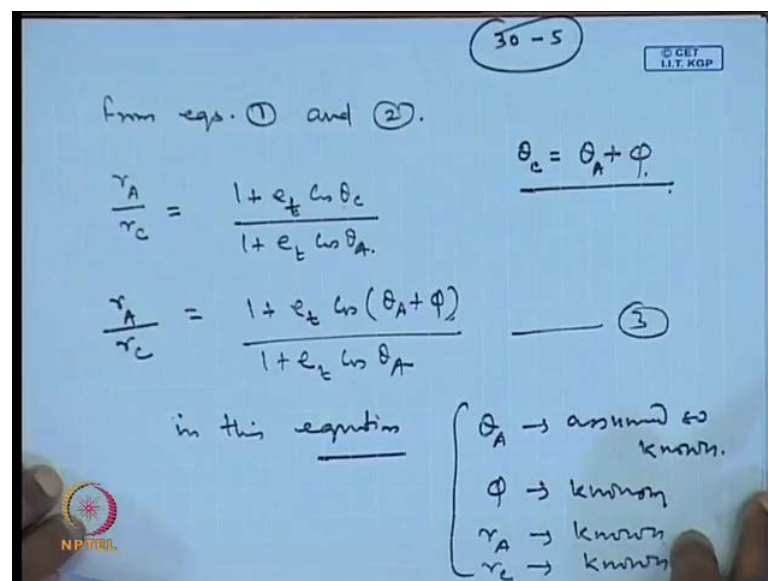 30-5
© CET
I.I.T. KGP
from eqs. ① and ②.
θ_c = θ_A + φ.
r_A / r_C = (1 + e_t cos θ_c) / (1 + e_t cos θ_A.)
r_A / r_C = (1 + e_t cos (θ_A + φ)) / (1 + e_t cos θ_A) ——— ③
in this equation
θ_A → assumed so
known.
φ → known
r_A → known
r_C → known
NPTEL